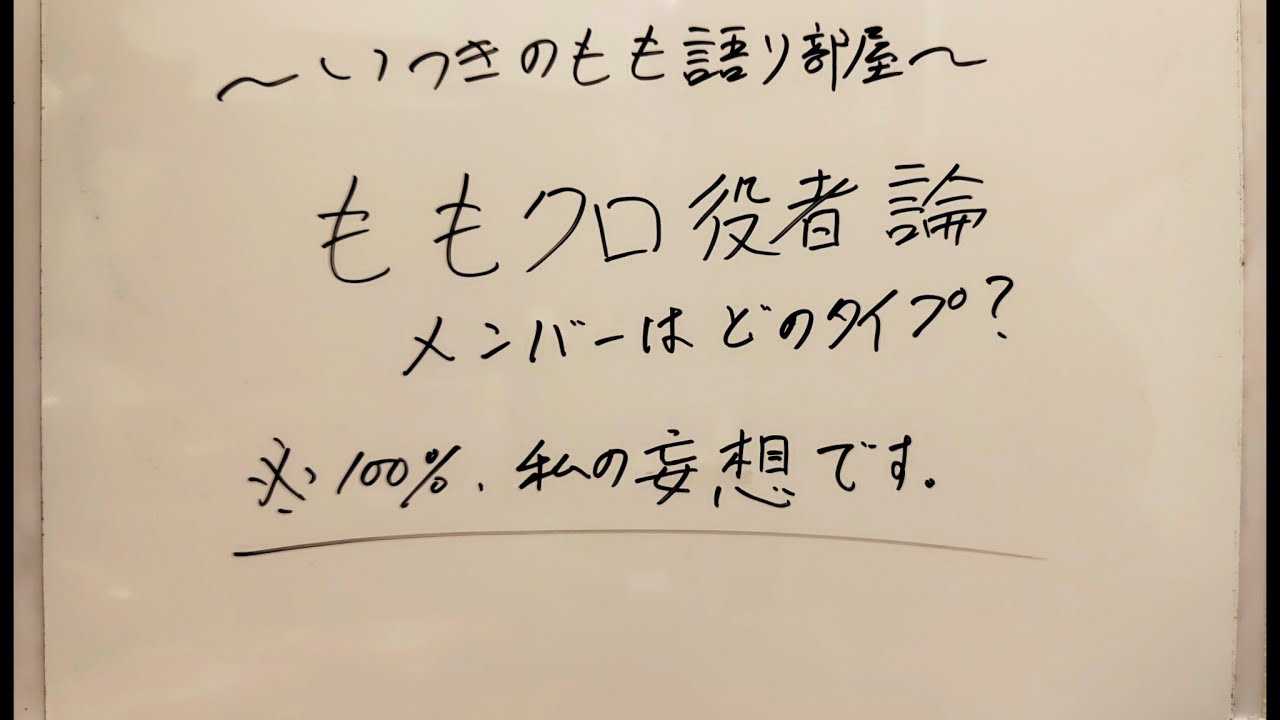 ～いつきのもも語り部屋～
ももクロ役者論
メンバーはどのタイプ？
※100%、私の妄想です。